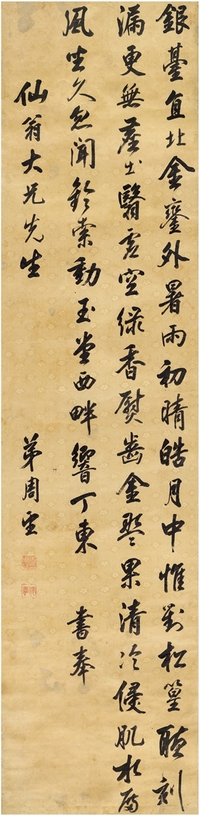 銀臺直北金鑾外暑雨初晴皓月中惟對松篁聽刻
漏更無塵土翳虛空綠香熨齒金盤果清冷侵肌水殿
風坐久忽聞鈴索動玉堂西畔響丁東 書奉
仙翁大兄先生
弟周